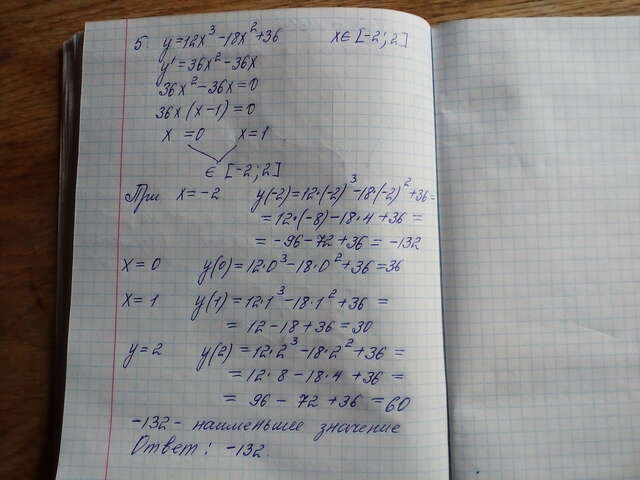 5. y=12x³-18x²+36 x∈[-2;2]
y'=36x²-36x
36x²-36x=0
36x(x-1)=0
x=0 x=1
∈ [-2;2]
При x=-2 y(-2)=12·(-2)³-18·(-2)²+36=
=12·(-8)-18·4+36=
=-96-72+36=-132
x=0 y(0)=12·0³-18·0²+36=36
x=1 y(1)=12·1³-18·1²+36=
=12-18+36=30
y=2 y(2)=12·2³-18·2²+36=
=12·8-18·4+36=
=96-72+36=60
-132- наименьшее значение
Ответ: -132.